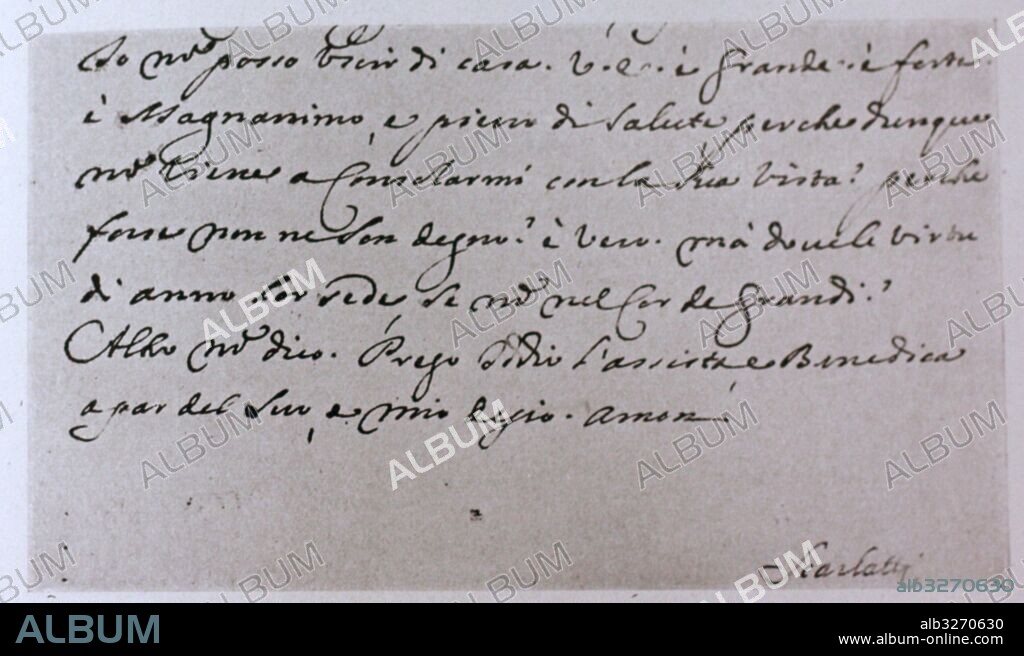 Io nõ posso uscir di casa. V. E. è grande. è forte.
è Magnanimo, e pieno di salute perche dunque
nõ viene a Consolarmi con la sua vista? perche
forse non ne son degno? è vero. mà doue le virtu
di anno sede, se nõ nel Cor de Grandi?
Altro nõ dico. Prego Iddio l'assista e Benedica
a par del suo, e mio desio. amen.
Scarlatti
ALBUM
alb3270630
ALBUM
alb3270630
www.album-online.com